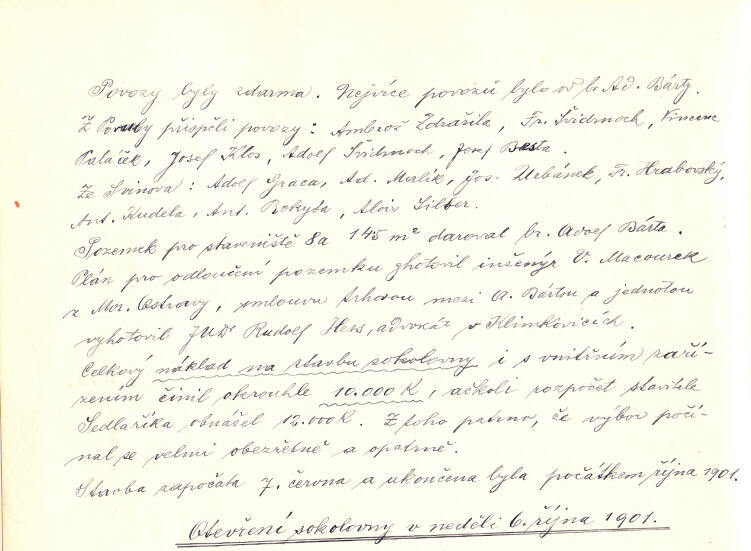 Povozy byly zdarma. Nejvíce povozů bylo od br. Ad. Bárty.
Z Poruby přispěli povozy: Ambrož Zdražila, Fr. Švidrnoch, Vincenc
Paláček, Josef Klos, Adolf Švidrnoch, Josef Besta.
Ze Svinova: Adolf Graca, Ad. Malík, Jos. Urbánek, Fr. Hrabovský,
Ant. Kudela, Ant. Rokyta, Alois Silber.
Pozemek pro staveniště 8a 145 m² daroval br. Adolf Bárta.
Plán pro odloučení pozemku zhotovil inšenýr V. Macourek
z Mor. Ostravy, smlouvu trhovou mezi A. Bártou a jednotou
vyhotovil JUDr Rudolf Hess, advokát v Klimkovicích.
Celkový náklad na stavbu sokolovny i s vnitřním zaří-
zením činil okrouhle 10.000 K, ačkoli rozpočet stavitele
Sedlaříka obnášel 12.000 K. Z toho patrno, že výbor počí-
nal se velmi obezřetně a opatrně.
Stavba započata 7. června a ukončena byla počátkem října 1901.
Otevření sokolovny v neděli 6. října 1901.